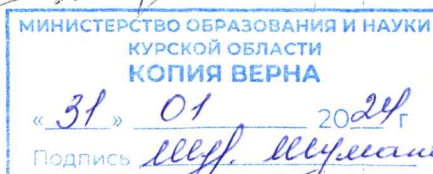 МИНИСТЕРСТВО ОБРАЗОВАНИЯ И НАУКИ
КУРСКОЙ ОБЛАСТИ
КОПИЯ ВЕРНА
«31» 01 2024 г
Подпись